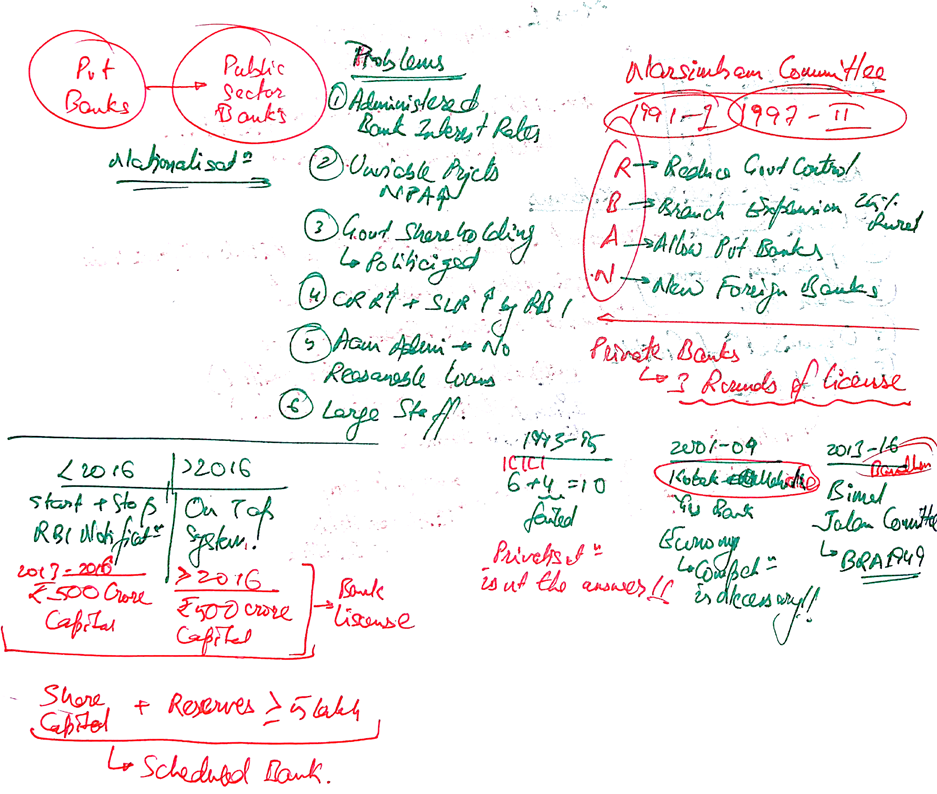 Pvt
Banks
Public
Sector
Banks
Nationalisatⁿ
Problems
① Administered
Bank Interest Rates
② Unviable Projcts
NPA↑
③ Govt Shareholding
↳ Politicized
④ CRR↑ + SLR ↑ by RBI
⑤ Admi → No
Reasonable loans
⑥ Large Staff.
Narsimham Committee
1991-I 1997-II
R → Reduce Govt Control
B → Branch Expansion 25% Rural
A → Allow Pvt Banks
N → New Foreign Banks
Private Banks
↳ 3 Rounds of license
1993-95
ICICI
6+4 = 10
failed
Privatisatⁿ
is nt the answer!!
2001-04
Kotak Mahindra
Yes Bank
Economy
↳ Compet"
is necessary!!
2013-16
Bandhan
Bimal
Jalan Comittee
↳ BRA 1949
<2016
Start + Stop
RBI Notificatⁿ
2013-2016
₹500 Crore
Capital
>2016
On Tap
System!
≥2016
₹500 crore
Capital
→ Bank
license
Share
Capital + Reserves ≥ 5 lakh
↳ Scheduled Bank.